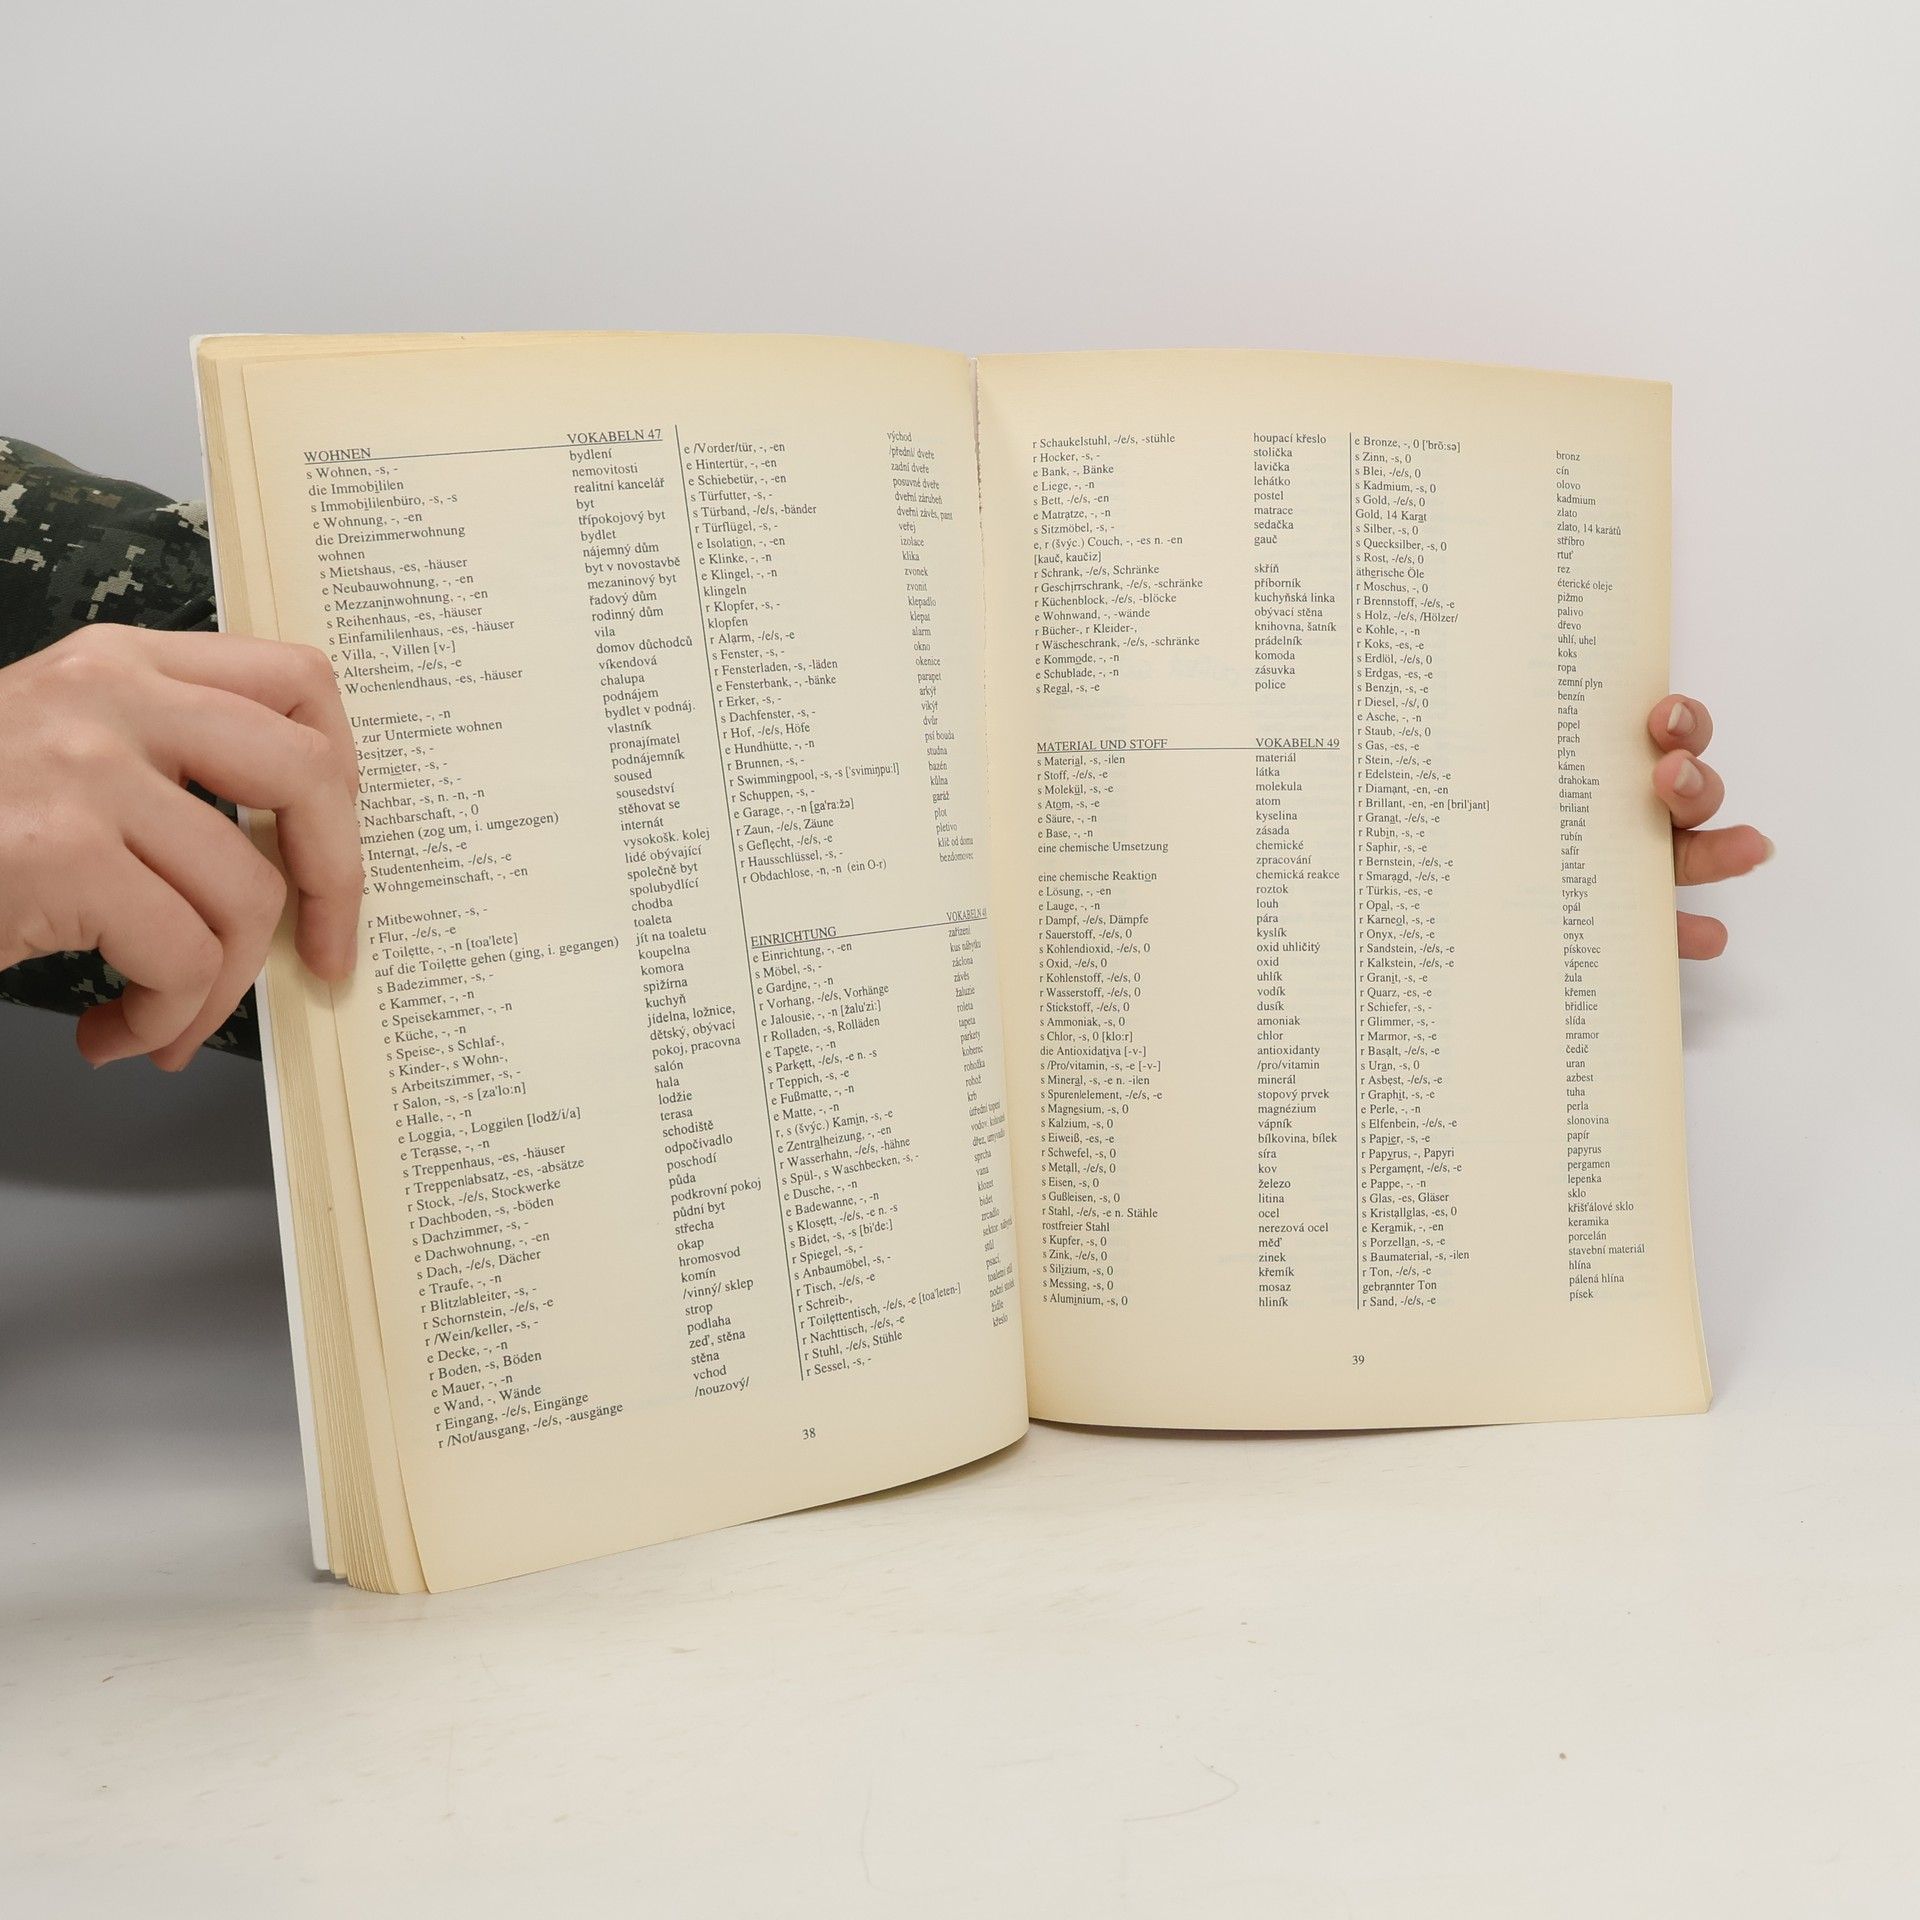 WOHNEN VOKABELN 47
s Wohnen, -s, - bydlení
die Immobilien nemovitosti
s Immobilienbüro, -s, -s realitní kancelář
e Wohnung, -, -en byt
die Dreizimmerwohnung třípokojový byt
wohnen bydlet
s Mietshaus, -es, -häuser nájemný dům
e Neubauwohnung, -, -en byt v novostavbě
e Mezzaninwohnung, -, -en mezaninový byt
s Reihenhaus, -es, -häuser řadový dům
s Einfamilienhaus, -es, -häuser rodinný dům
e Villa, -, Villen [v-] vila
s Altersheim, -/e/s, -e domov důchodců
s Wochen|endhaus, -es, -häuser víkendová
chalupa
Untermiete, -, -n podnájem
, zur Untermiete wohnen bydlet v podnáj.
Besitzer, -s, - vlastník
Vermieter, -s, - pronajímatel
Untermieter, -s, - podnájemník
Nachbar, -s, n. -n, -n soused
e Nachbarschaft, -, 0 sousedství
umziehen (zog um, i. umgezogen) stěhovat se
s Internat, -/e/s, -e internát
s Studentenheim, -/e/s, -e vysokošk. kolej
e Wohngemeinschaft, -, -en lidé obývající
společně byt
r Mitbewohner, -s, - spolubydlící
r Flur, -/e/s, -e chodba
e Toilette, -, -n [toa'lete] toaleta
auf die Toilette gehen (ging, i. gegangen) jít na toaletu
s Badezimmer, -s, - koupelna
e Kammer, -, -n komora
e Speisekammer, -, -n spižírna
e Küche, -, -n kuchyň
s Speise-, s Schlaf-, jídelna, ložnice,
s Kinder-, s Wohn-, dětský, obývací
s Arbeitszimmer, -s, - pokoj, pracovna
r Salon, -s, -s [za'lo:n] salón
e Halle, -, -n hala
e Loggia, -, Loggien [lodž/i/a] lodžie
e Terasse, -, -n terasa
s Treppenhaus, -es, -häuser schodiště
r Treppen|absatz, -es, -absätze odpočívadlo
r Stock, -/e/s, Stockwerke poschodí
r Dachboden, -s, -böden půda
s Dachzimmer, -s, - podkrovní pokoj
e Dachwohnung, -, -en půdní byt
s Dach, -/e/s, Dächer střecha
e Traufe, -, -n okap
r Blitz|ableiter, -s, - hromosvod
r Schornstein, -/e/s, -e komín
r /Wein/keller, -s, - /vinný/ sklep
e Decke, -, -n strop
r Boden, -s, Böden podlaha
e Mauer, -, -n zeď, stěna
e Wand, -, Wände stěna
r Eingang, -/e/s, Eingänge vchod
r /Not/ausgang, -/e/s, -ausgänge /nouzový/
východ
e /Vorder/tür, -, -en /přední/ dveře
e Hintertür, -, -en zadní dveře
e Schiebetür, -, -en posuvné dveře
s Türfutter, -s, - dveřní zárubeň
s Türband, -/e/s, -bänder dveřní závěs, pant
r Türflügel, -s, - veřej
e Isolation, -, -en izolace
e Klinke, -, -n klika
e Klingel, -, -n zvonek
klingeln zvonit
r Klopfer, -s, - klepadlo
klopfen klepat
r Alarm, -/e/s, -e alarm
s Fenster, -s, - okno
r Fensterladen, -s, -läden okenice
e Fensterbank, -, -bänke parapet
r Erker, -s, - arkýř
s Dachfenster, -s, - vikýř
r Hof, -/e/s, Höfe dvůr
e Hundhütte, -, -n psí bouda
r Brunnen, -s, - studna
r Swimmingpool, -s, -s ['svimiŋpu:l] bazén
r Schuppen, -s, - kůlna
e Garage, -, -n [ga'ra:žə] garáž
r Zaun, -/e/s, Zäune plot
s Geflecht, -/e/s, -e pletivo
r Hausschlüssel, -s, - klíč od domu
r Obdachlose, -n, -n (ein O-r) bezdomovec
EINRICHTUNG VOKABELN 48
e Einrichtung, -, -en zařízení
s Möbel, -s, - kus nábytku
e Gardine, -, -n záclona
r Vorhang, -/e/s, Vorhänge závěs
e Jalousie, -, -n [žalu'zi:] žaluzie
r Rolladen, -s, Rolläden roleta
e Tapete, -, -n tapeta
s Parkett, -/e/s, -e n. -s parkety
r Teppich, -s, -e koberec
e Fußmatte, -, -n rohožka
e Matte, -, -n rohož
r, s (švýc.) Kamin, -s, -e krb
e Zentralheizung, -, -en ústřední topení
r Wasserhahn, -/e/s, -hähne vodov. kohoutek
s Spül-, s Waschbecken, -s, - dřez, umyvadlo
e Dusche, -, -n sprcha
e Badewanne, -, -n vana
s Klosett, -/e/s, -e n. -s klozet
s Bidet, -s, -s [bi'de:] bidet
r Spiegel, -s, - zrcadlo
s Anbaumöbel, -s, - sektor. nábytek
r Tisch, -/e/s, -e stůl
r Schreib-, psací,
r Toilettentisch, -/e/s, -e [toa'leten-] toaletní stůl
r Nachttisch, -/e/s, -e noční stolek
r Stuhl, -/e/s, Stühle židle
r Sessel, -s, - křeslo
38
r Schaukelstuhl, -/e/s, -stühle houpací křeslo
r Hocker, -s, - stolička
e Bank, -, Bänke lavička
e Liege, -, -n lehátko
s Bett, -/e/s, -en postel
e Matratze, -, -n matrace
s Sitzmöbel, -s, - sedačka
e, r (švýc.) Couch, -, -es n. -en gauč
[kauč, kaučiz]
r Schrank, -/e/s, Schränke skříň
r Geschirrschrank, -/e/s, -schränke příborník
r Küchenblock, -/e/s, -blöcke kuchyňská linka
e Wohnwand, -, -wände obývací stěna
r Bücher-, r Kleider-, knihovna, šatník
r Wäscheschrank, -/e/s, -schränke prádelník
e Kommode, -, -n komoda
e Schublade, -, -n zásuvka
s Regal, -s, -e police
MATERIAL UND STOFF VOKABELN 49
s Material, -s, -ilen materiál
r Stoff, -/e/s, -e látka
s Molekül, -s, -e molekula
s Atom, -s, -e atom
e Säure, -, -n kyselina
e Base, -, -n zásada
eine chemische Umsetzung chemické
zpracování
eine chemische Reaktion chemická reakce
e Lösung, -, -en roztok
e Lauge, -, -n louh
r Dampf, -/e/s, Dämpfe pára
r Sauerstoff, -/e/s, 0 kyslík
s Kohlendioxid, -/e/s, 0 oxid uhličitý
s Oxid, -/e/s, 0 oxid
r Kohlenstoff, -/e/s, 0 uhlík
r Wasserstoff, -/e/s, 0 vodík
r Stickstoff, -/e/s, 0 dusík
s Ammoniak, -s, 0 amoniak
s Chlor, -s, 0 [klo:r] chlor
die Antioxidativa [-v-] antioxidanty
s /Pro/vitamin, -s, -e [-v-] /pro/vitamin
s Mineral, -s, -e n. -ilen minerál
s Spuren|element, -/e/s, -e stopový prvek
s Magnesium, -s, 0 magnézium
s Kalzium, -s, 0 vápník
s Eiweiß, -es, -e bílkovina, bílek
r Schwefel, -s, 0 síra
s Metall, -/e/s, 0 kov
s Eisen, -s, 0 železo
s Gußleisen, -s, 0 litina
r Stahl, -/e/s, -e n. Stähle ocel
rostfreier Stahl nerezová ocel
s Kupfer, -s, 0 měď
s Zink, -/e/s, 0 zinek
s Silizium, -s, 0 křemík
s Messing, -s, 0 mosaz
s Aluminium, -s, 0 hliník
e Bronze, -, 0 ['brõ:sə] bronz
s Zinn, -s, 0 cín
s Blei, -/e/s, 0 olovo
s Kadmium, -s, 0 kadmium
s Gold, -/e/s, 0 zlato
Gold, 14 Karat zlato, 14 karátů
s Silber, -s, 0 stříbro
s Quecksilber, -s, 0 rtuť
s Rost, -/e/s, 0 rez
ätherische Öle éterické oleje
r Moschus, -, 0 pižmo
r Brennstoff, -/e/s, -e palivo
s Holz, -/e/s, /Hölzer/ dřevo
e Kohle, -, -n uhlí, uhel
r Koks, -es, -e koks
s Erdöl, -/e/s, 0 ropa
s Erdgas, -es, -e zemní plyn
s Benzin, -s, -e benzín
r Diesel, -/s/, 0 nafta
e Asche, -, -n popel
r Staub, -/e/s, 0 prach
s Gas, -es, -e plyn
r Stein, -/e/s, -e kámen
r Edelstein, -/e/s, -e drahokam
r Diamant, -en, -en diamant
r Brillant, -en, -en [bril'jant] briliant
r Granat, -/e/s, -e granát
r Rubin, -s, -e rubín
r Saphir, -s, -e safír
r Bernstein, -/e/s, -e jantar
r Smaragd, -/e/s, -e smaragd
r Türkis, -es, -e tyrkys
r Opal, -s, -e opál
r Karneol, -s, -e karneol
r Onyx, -/e/s, -e onyx
r Sandstein, -/e/s, -e pískovec
r Kalkstein, -/e/s, -e vápenec
r Granit, -s, -e žula
r Quarz, -es, -e křemen
r Schiefer, -s, - břidlice
r Glimmer, -s, - slída
r Marmor, -s, -e mramor
r Basalt, -/e/s, -e čedič
s Uran, -s, 0 uran
r Asbest, -/e/s, -e azbest
r Graphit, -s, -e tuha
e Perle, -, -n perla
s Elfenbein, -/e/s, -e slonovina
s Papier, -s, -e papír
r Papyrus, -, Papyri papyrus
s Pergament, -/e/s, -e pergamen
e Pappe, -, -n lepenka
s Glas, -es, Gläser sklo
s Kristallglas, -es, 0 křišťálové sklo
e Keramik, -, -en keramika
s Porzellan, -s, -e porcelán
s Baumaterial, -s, -ilen stavební materiál
r Ton, -/e/s, -e hlína
gebrannter Ton pálená hlína
r Sand, -/e/s, -e písek
39